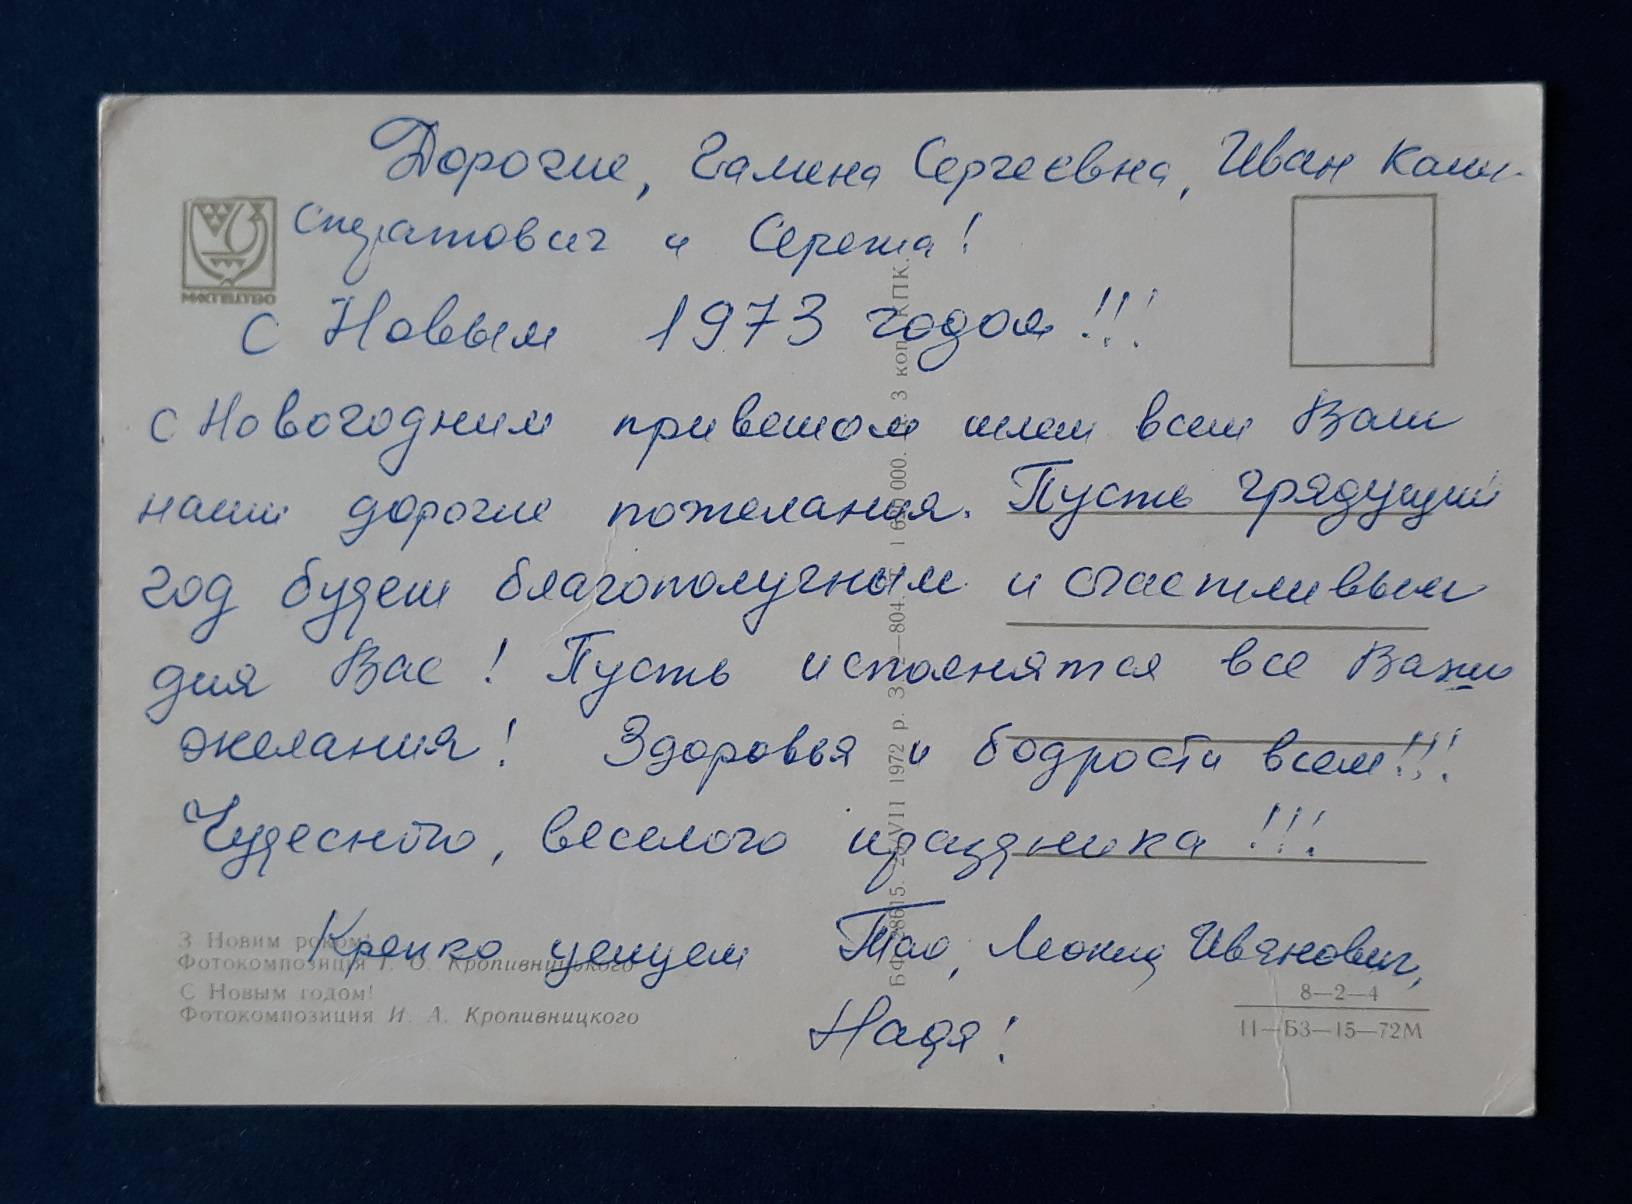 Дорогие, Галина Сергеевна, Иван Кали-
стратович и Сережа!
МИСТЕЦТВО
С Новым 1973 годом!!!
С Новогодним приветом шлем всем Вам
наши дорогие пожелания. Пусть грядущий
год будет благополучным и счастливым
для Вас! Пусть исполнятся все Ваши
желания! Здоровья и бодрости всем!!!
Чудесного, веселого праздника!!!
Крепко целуем Тая, Леонид Иванович,
Надя!
З Новим роком!
Фотокомпозиція І. О. Кропивницького
С Новым годом!
Фотокомпозиция И. А. Кропивницкого
8—2—4
11—БЗ—15—72М
VII 1972 р. 3 коп. КПК.